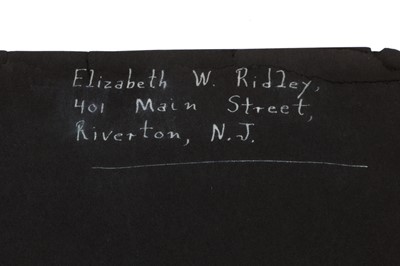 Elizabeth W. Ridley,
401 Main Street,
Riverton, N.J.